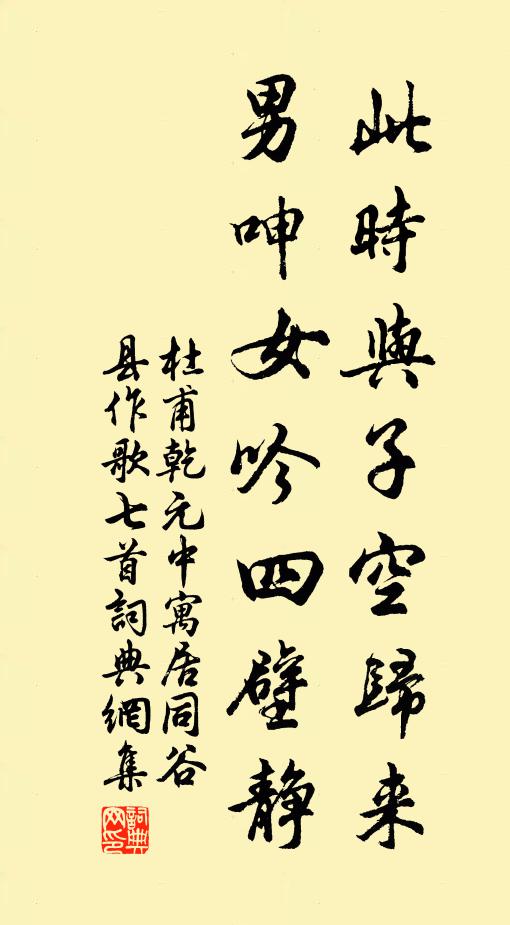 此時與子空歸来
男呻女吟四壁静
杜甫乾元中寓居同谷
县作歌七首詞典網集
詞典网印